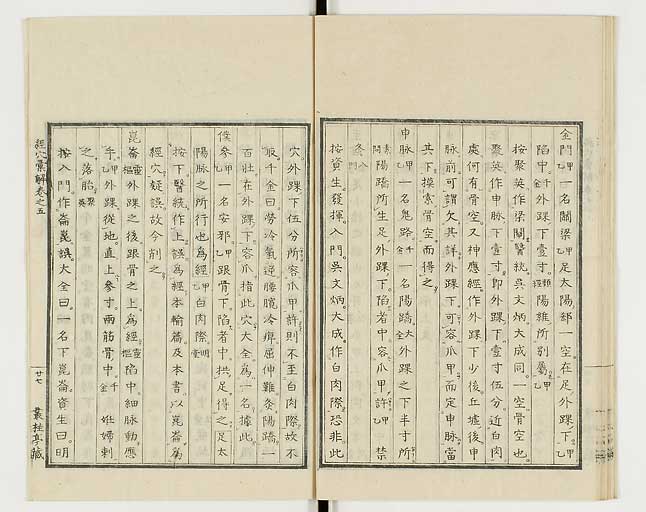 金門甲乙一名關梁甲乙足太陽郄一空在足外踝下甲乙
陷中千金外踝下壹寸類經陽維所別屬甲乙
按聚英作梁關醫統吳文炳大成同一空骨空也
聚英作申脉下壹寸即外踝下壹寸伍分近白肉
處何有骨空又神應經作外踝下少後丘墟後申
脉前可謂欠其詳外踝下可容爪甲而定申脉當
其下摸索骨空而得之
申脉甲乙一名鬼路千金一名陽蹻大全外踝之下半寸所
素問陽蹻所生足外踝下陷者中容爪甲許甲乙禁
灸入門
按資生發揮入門吳文炳大成作白肉際恐非此
穴外踝下伍分所容爪甲許則不至白肉際故不
取千金曰勞冷氣逆腰髖冷痹屈伸難灸陽蹻一
百壯在外踝下容爪指此穴大全為一名據此
僕參甲乙一名安邪甲乙跟骨下陷者中拱足得之足太
陽脉之所行也為經甲乙白肉際明堂
按下醫統作上誤為經本輸篇及本書以崑崙為
經穴疑誤故今削之
崑崙靈樞外踝之後跟骨之上為經靈樞陷中細脉動應
手甲乙外踝從地直上參寸兩筋骨中千金姙婦刺
之落胎聚英
按入門作崙崑誤大全曰一名下崑崙資生曰明
經穴彙解卷之五
廿七
叢桂亭藏